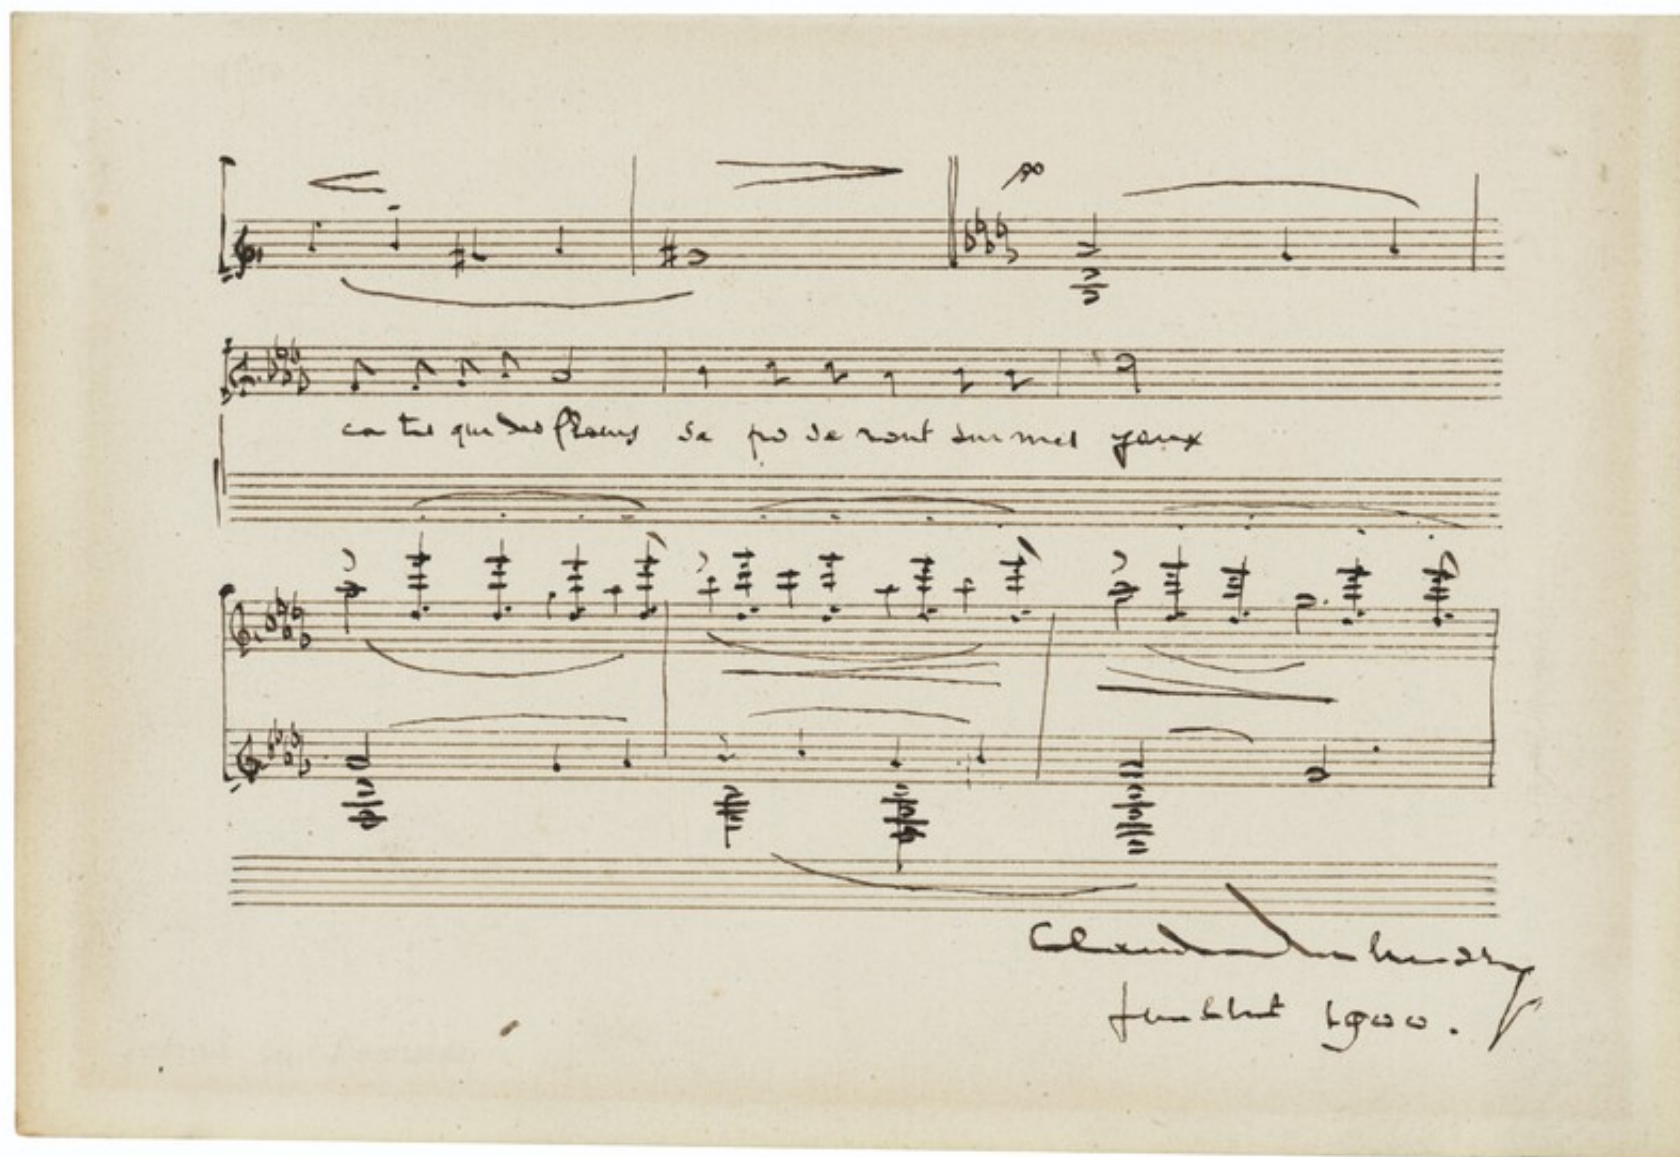 pp
que des fleurs se po se ront sur mes yeux
Claude Debussy
Juillet 1900.